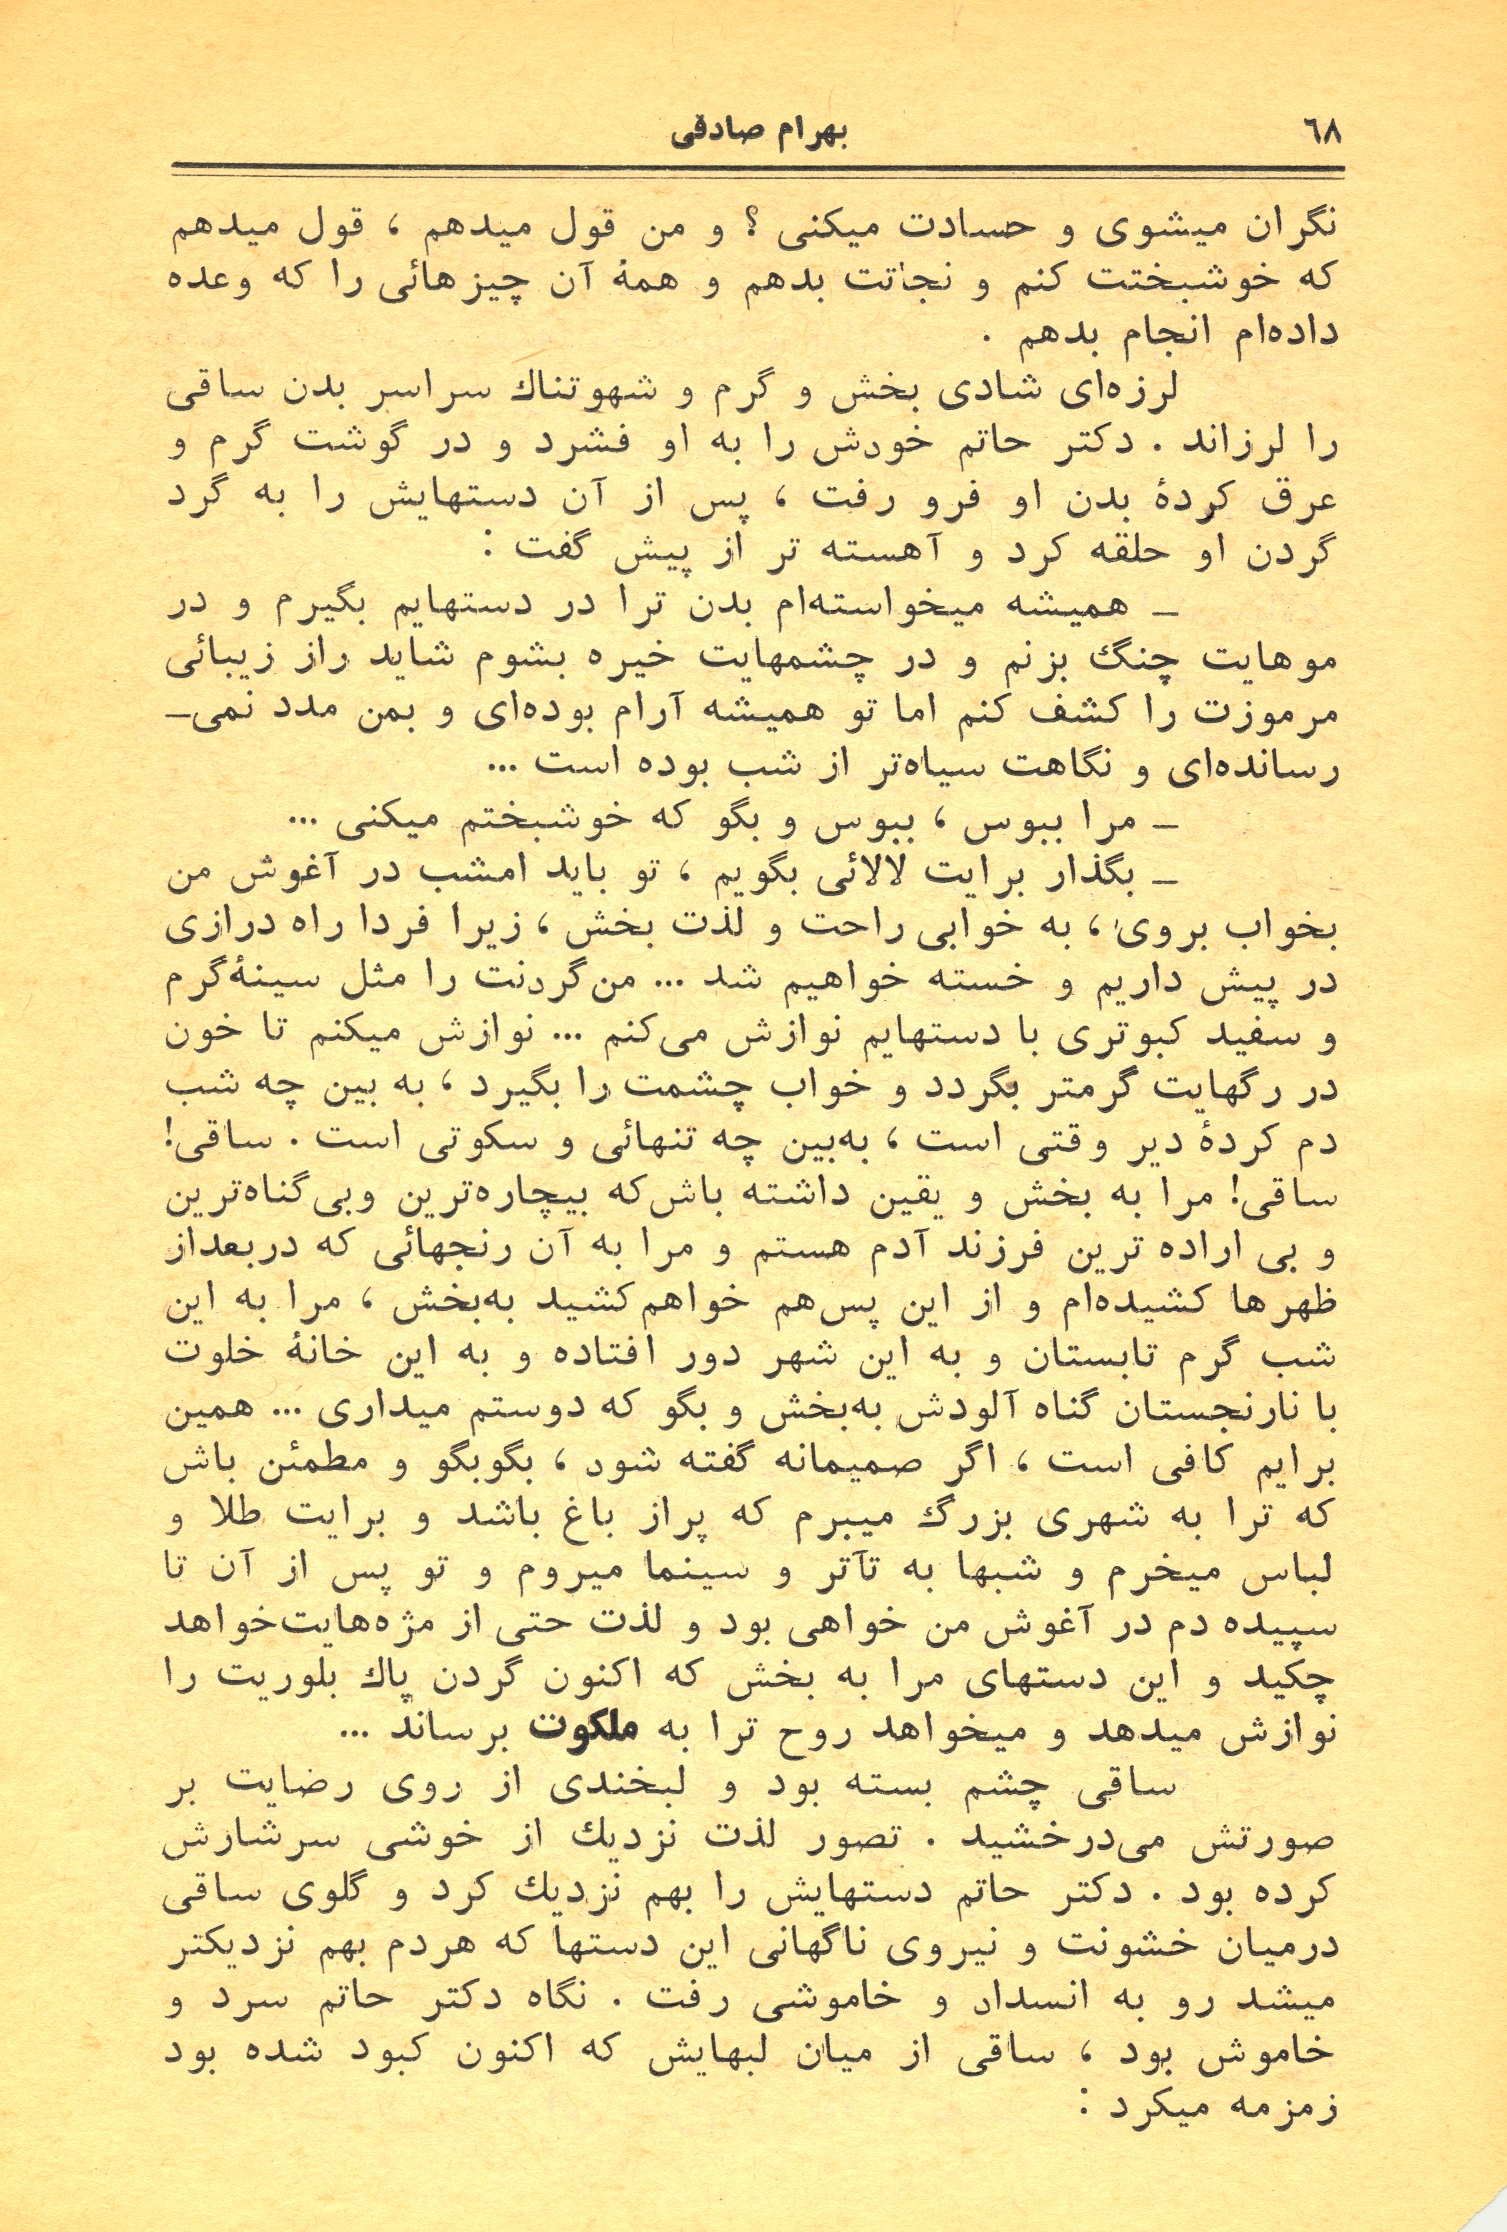 ۶۸
بهرام صادقی
نگران میشوی و حسادت میکنی ؟ و من قول میدهم ، قول میدهم
که خوشبختت کنم و نجاتت بدهم و همهٔ آن چیزهائی را که وعده
داده‌ام انجام بدهم .
لرزه‌ای شادی بخش و گرم و شهوتناك سراسر بدن ساقی
را لرزاند . دکتر حاتم خودش را به او فشرد و در گوشت گرم و
عرق کردهٔ بدن او فرو رفت ، پس از آن دستهایش را به گرد
گردن او حلقه کرد و آهسته تر از پیش گفت :
ـ همیشه میخواسته‌ام بدن ترا در دستهایم بگیرم و در
موهایت چنگ بزنم و در چشمهایت خیره بشوم شاید راز زیبائی
مرموزت را کشف کنم اما تو همیشه آرام بوده‌ای و بمن مدد نمی‌ـ
رسانده‌ای و نگاهت سیاه‌تر از شب بوده است ...
ـ مرا ببوس ، ببوس و بگو که خوشبختم میکنی ...
ـ بگذار برایت لالائی بگویم ، تو باید امشب در آغوش من
بخواب بروی ، به خوابی راحت و لذت بخش ، زیرا فردا راه درازی
در پیش داریم و خسته خواهیم شد ... من گردنت را مثل سینهٔ گرم
و سفید کبوتری با دستهایم نوازش می‌کنم ... نوازش میکنم تا خون
در رگهایت گرمتر بگردد و خواب چشمت را بگیرد ، به بین چه شب
دم کردهٔ دیر وقتی است ، به‌بین چه تنهائی و سکوتی است . ساقی!
ساقی! مرا به بخش و یقین داشته باش که بیچاره‌ترین و بی گناه‌ترین
و بی اراده ترین فرزند آدم هستم و مرا به آن رنجهائی که در بعداز
ظهرها کشیده‌ام و از این پس هم خواهم کشید به‌بخش ، مرا به این
شب گرم تابستان و به این شهر دور افتاده و به این خانهٔ خلوت
با نارنجستان گناه آلودش به‌بخش و بگو که دوستم میداری ... همین
برایم کافی است ، اگر صمیمانه گفته شود ، بگوبگو و مطمئن باش
که ترا به شهری بزرگ میبرم که پراز باغ باشد و برایت طلا و
لباس میخرم و شبها به تآتر و سینما میروم و تو پس از آن تا
سپیده دم در آغوش من خواهی بود و لذت حتی از مژه‌هایت خواهد
چکید و این دستهای مرا به بخش که اکنون گردن پاك بلوریت را
نوازش میدهد و میخواهد روح ترا به ملکوت برساند ...
ساقی چشم بسته بود و لبخندی از روی رضایت بر
صورتش می‌درخشید . تصور لذت نزدیك از خوشی سرشارش
کرده بود . دکتر حاتم دستهایش را بهم نزدیك کرد و گلوی ساقی
درمیان خشونت و نیروی ناگهانی این دستها که هردم بهم نزدیکتر
میشد رو به انسداد و خاموشی رفت . نگاه دکتر حاتم سرد و
خاموش بود ، ساقی از میان لبهایش که اکنون کبود شده بود
زمزمه میکرد :